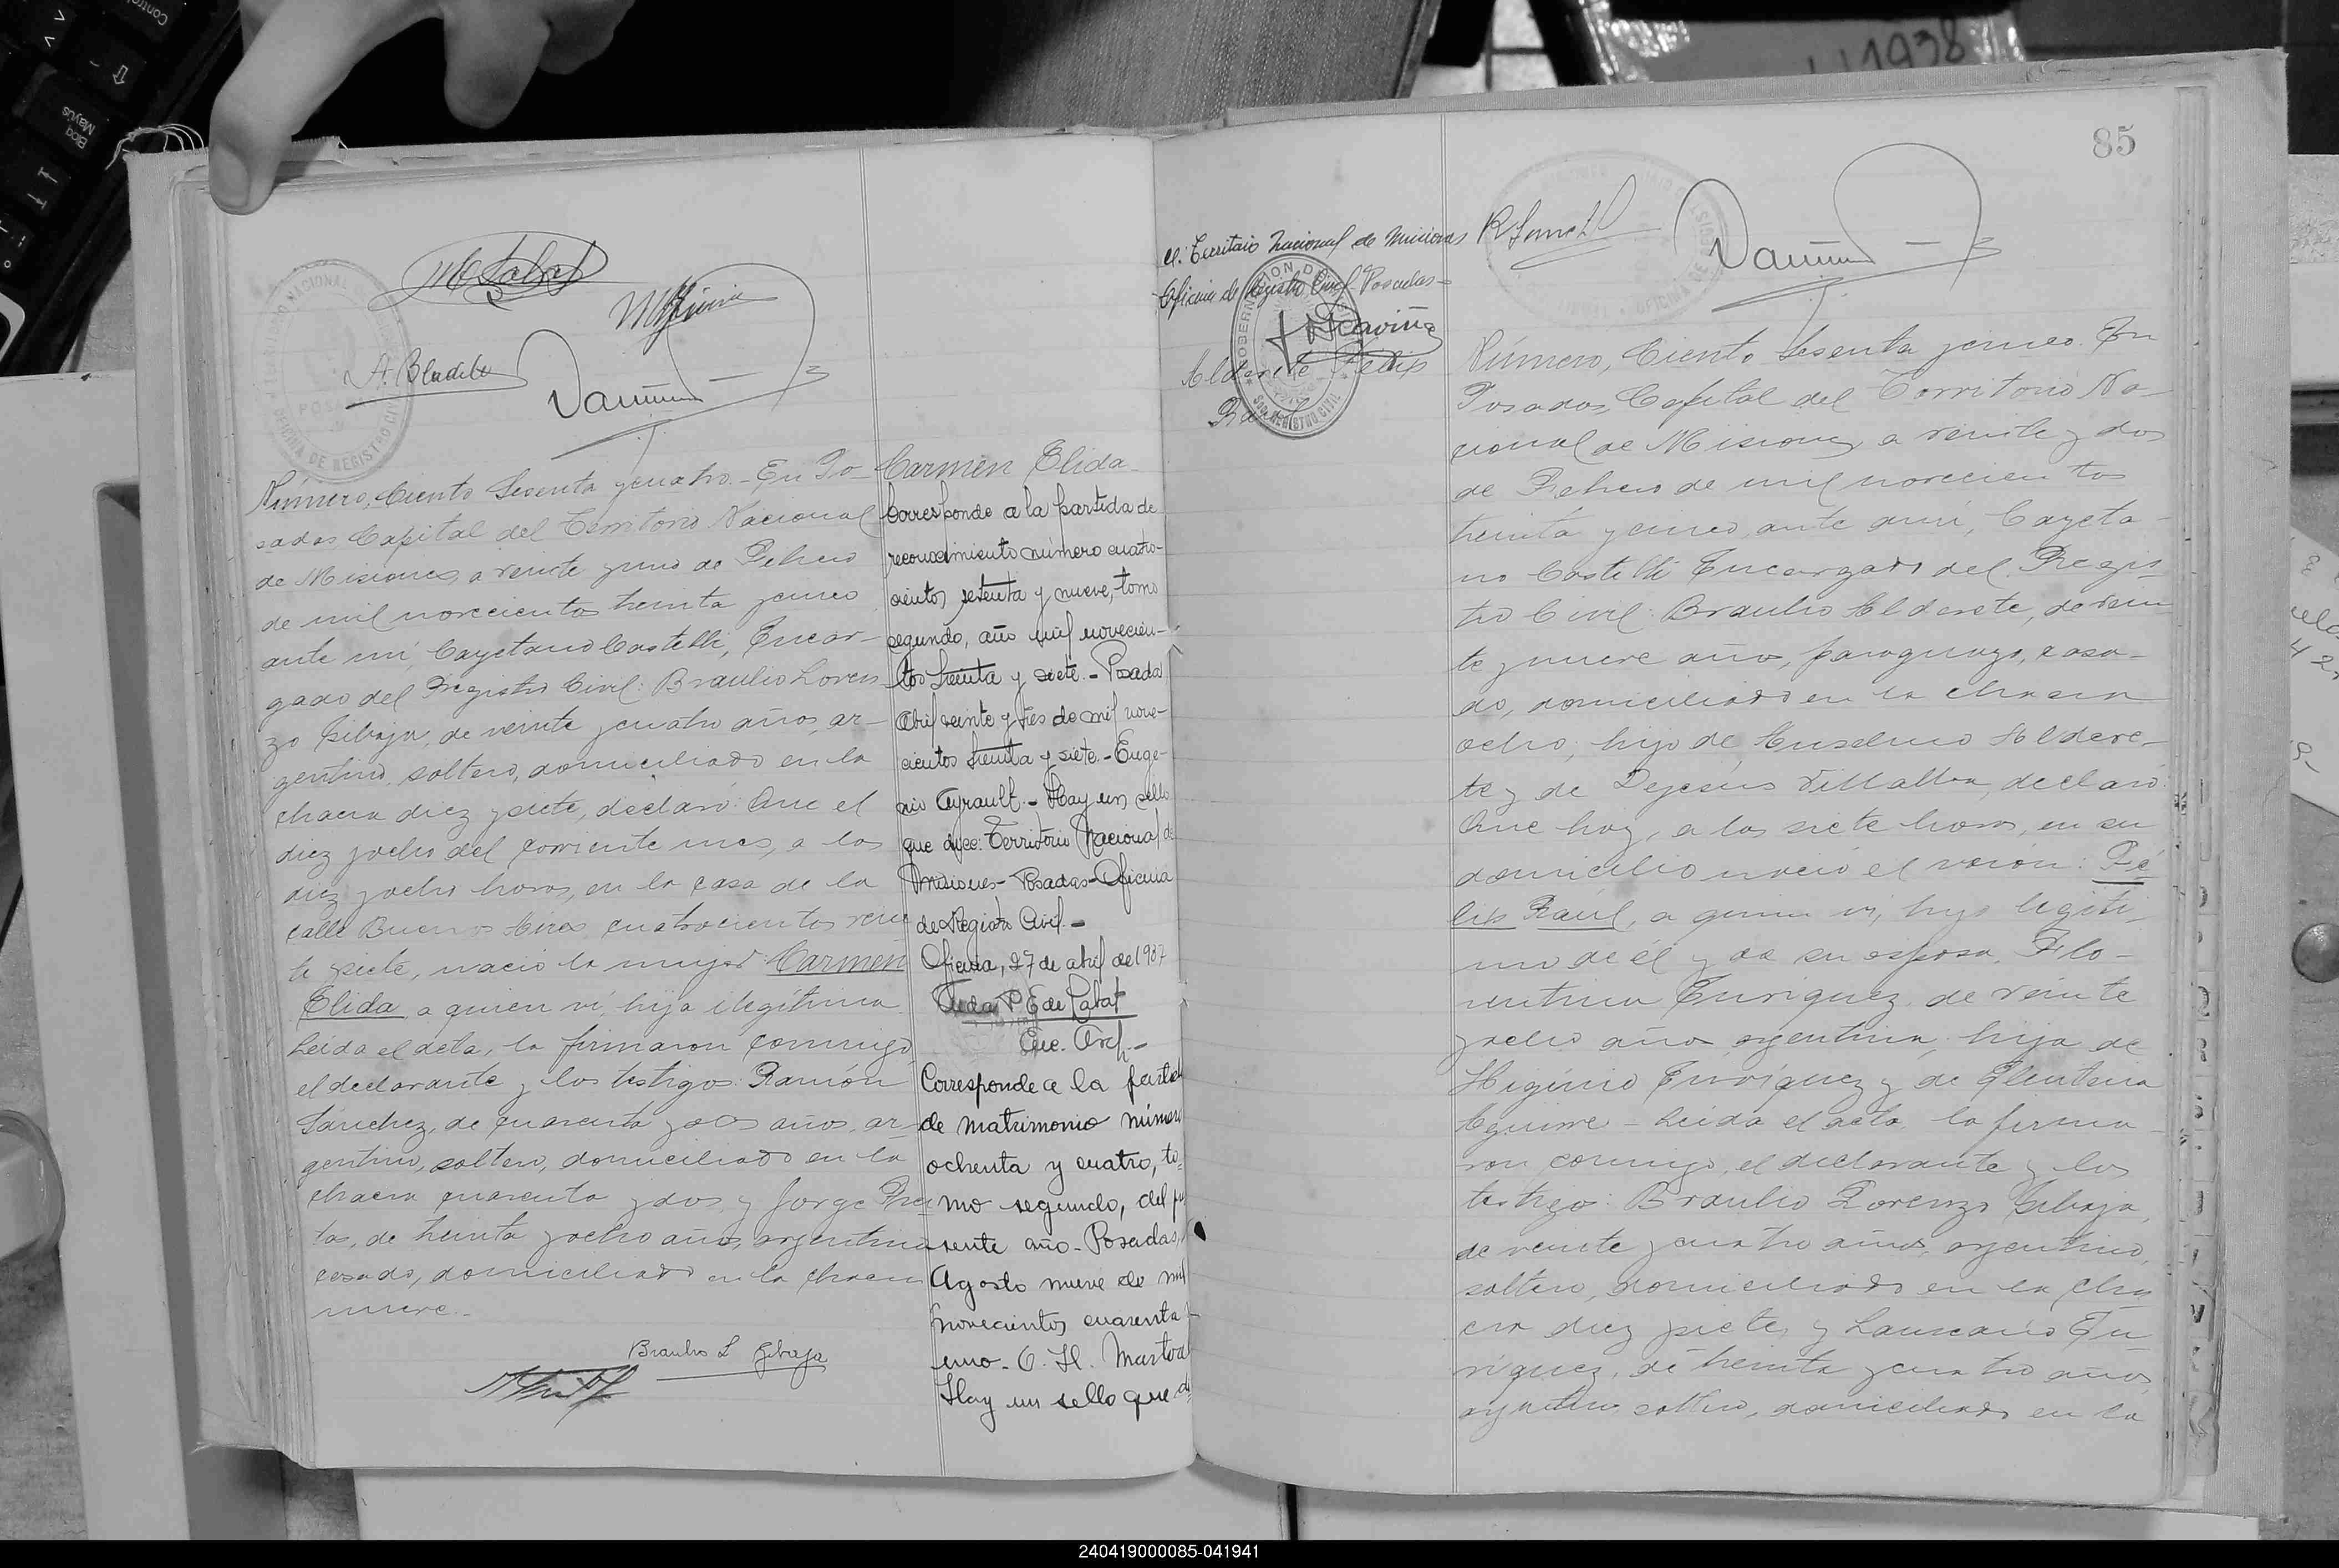 M Sabat
A. Bladilo
Número, Ciento Sesenta y cuatro.- En Po-
sadas, Capital del Territorio Nacional
de Misiones, a veinte y uno de Febrero
de mil novecientos treinta y cinco
ante mí, Cayetano Castelli, Encar-
gado del Registro Civil: Braulio Loren-
zo Gibaja, de veinte y cuatro años, ar-
gentino, soltero, domiciliado en la
chacra diez y siete, declaró: Que el
diez y ocho del corriente mes, a las
diez y ocho horas, en la casa de la
calle Buenos Aires cuatrocientos vein
te y siete, nació la mujer: Carmen
Élida, a quien ví, hija ilegítima.
Leída el acta, la firmaron conmigo
el declarante y los testigos: Ramón
Sánchez, de cuarenta y dos años, ar-
gentino, soltero, domiciliado en la
chacra cuarenta y dos, y Jorge
tas, de treinta y ocho años, argentino
casado, domiciliado en la chacra
nueve.-
Braulio L Gibaja
Carmen Elida
Corresponde a la partida de
reconocimiento número cuatro-
cientos setenta y nueve, tomo
segundo, año mil novecien-
tos treinta y siete.- Posadas
Abril veinte y tres de mil nove-
cientos treinta y siete.- Euge-
nio Ayrault.- Hay un sello
que dice: Territorio Nacional de
Misiones- Posadas- Oficina
de Registro Civil.-
Oficina, 27 de abril de 1937
Aida P E de Labat
Enc. Arch.-
Corresponde a la partida
de matrimonio número
ochenta y cuatro, to-
mo segundo, del pre
sente año- Posadas,
Agosto nueve de mil
novecientos cuarenta y
uno- C. H.
Hay un sello que di-
ce: Territorio Nacional de Misiones
Oficina de Registro Civil Posadas-
GOBERNACION DE
SEC. REGISTRO CIVIL
Alderete Félix
Raúl
85
Número, Ciento Sesenta y cinco. En
Posadas, Capital del Territorio Na-
cional de Misiones, a veinte y dos
de Febrero de mil novecientos
treinta y cinco, ante mí, Cayeta-
no Castelli Encargado del Regis-
tro Civil: Braulio Alderete, de vein
te y nueve años, paraguayo, casa-
do, domiciliado en la chacra
ocho, hijo de Anselmo Aldere-
te y de Dejesús Villalba, declaró:
Que hoy, a las siete horas, en su
domicilio nació el varón: Fé
lix Raúl, a quien ví, hijo legíti-
mo de él y de su esposa, Flo-
rentina Enriquez, de veinte
y ocho años, argentina, hija de
Higinio Enriquez y de
Aguirre - Leída el acta, la firma-
ron conmigo, el declarante y los
testigos: Braulio Lorenzo Gibaja,
de veinte y cuatro años, argentino,
soltero, domiciliado en la cha
cra diez y siete, y Laureano En
riquez, de treinta y cuatro años,
argentino, soltero, domiciliado en la
240419000085-041941